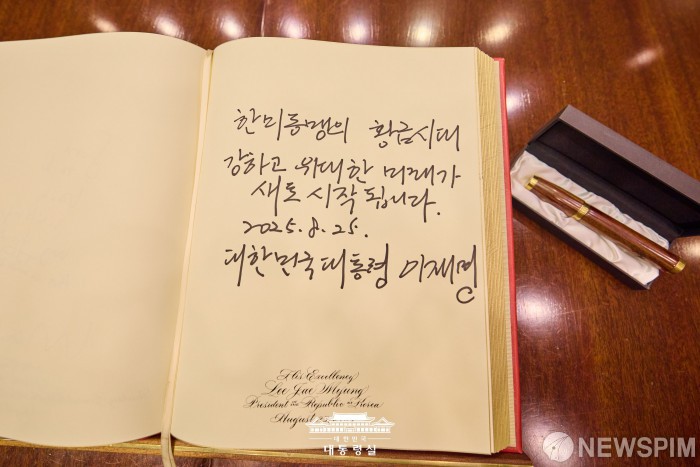 한미동맹의 황금시대
강하고 위대한 미래가
새로 시작됩니다.
2025. 8. 25.
대한민국 대통령 이재명
His Excellency
Lee Jae Myung
President of the Republic of Korea
August
대한민국
대통령실
NEWSPIM